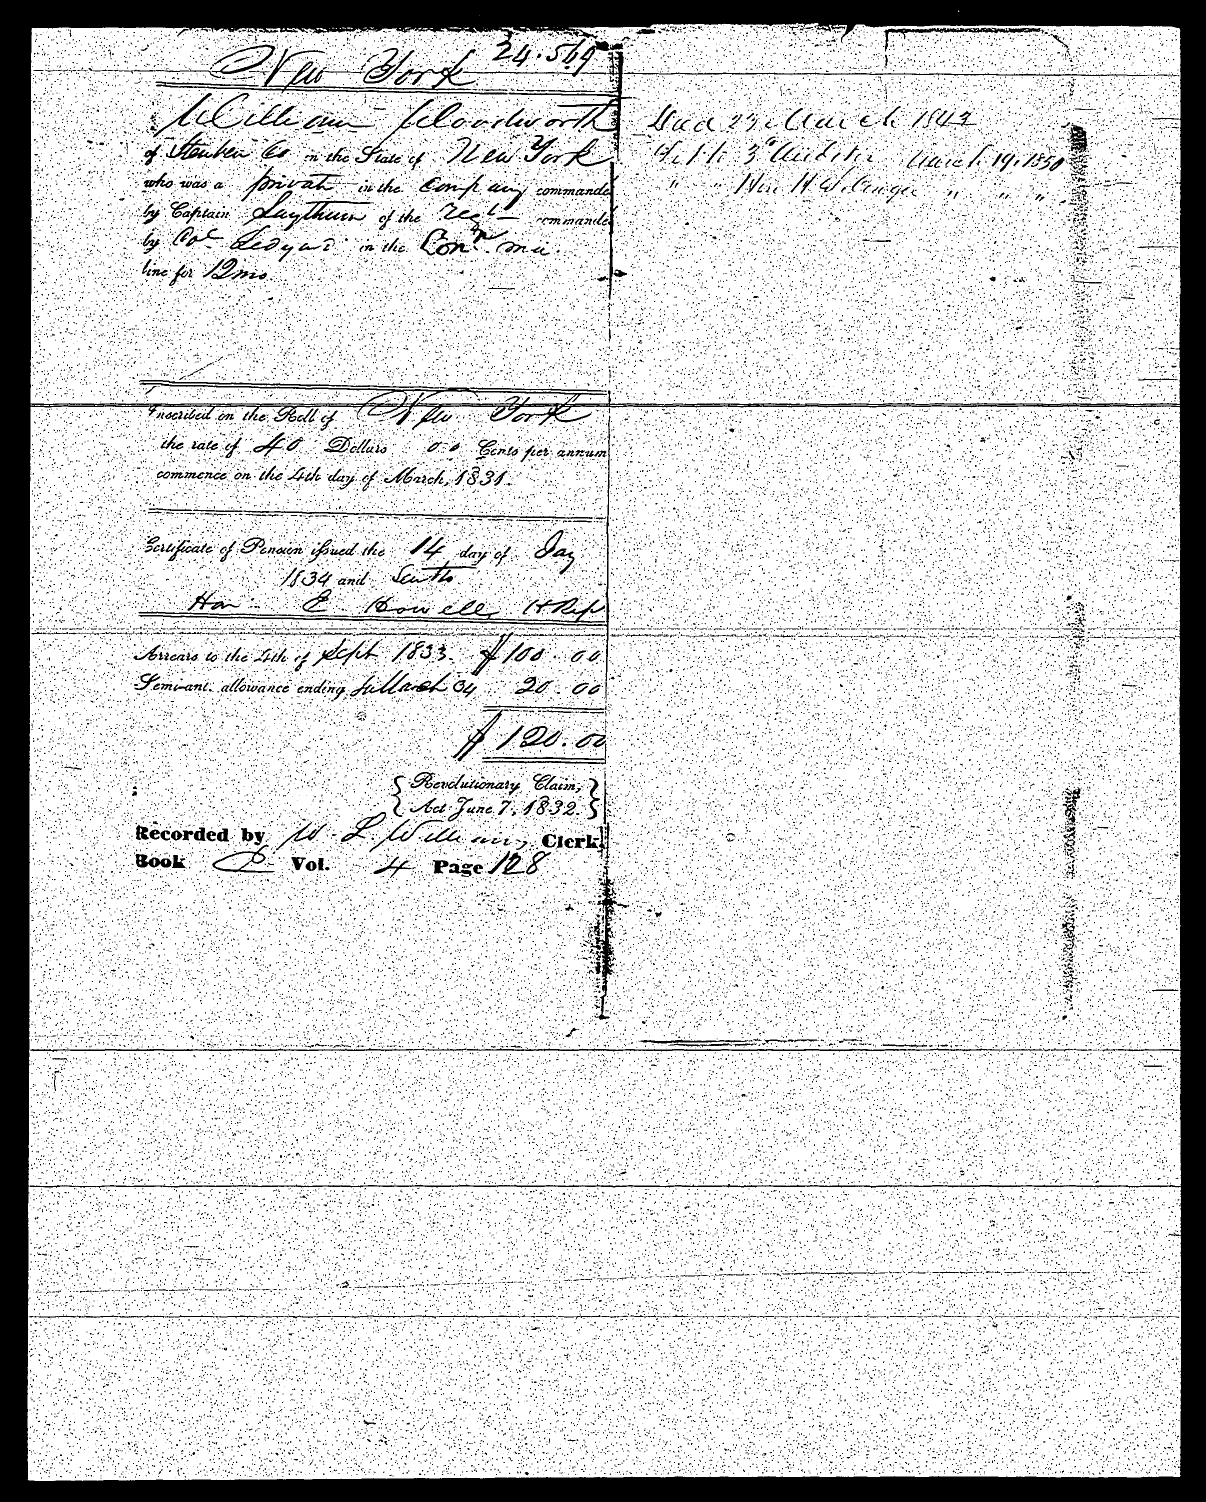 24.569
New York
William Woodworth
of Steuben Co in the State of New York
who was a private in the company commanded
by Captain of the Regt commanded
by Col Ledyard in the Conn
line for 12 mo
Inscribed on the Roll of New York
the rate of 40 Dollars 00 Cents per annum
commence on the 4th day of March, 1831.
Certificate of Pension issued the 14 day of
1834 and
Hon E Howell H Rep
Arrears to the 4th of Sept 1833. $100.00
Semi-ant. allowance ending March 34 20.00
$120.00
Revolutionary Claim,
Act June 7, 1832.
Recorded by W. L. Williams, Clerk,
Book Vol. 4 Page 128
Died 23 March 1843
3d Auditor March 19, 1850
" " Hon " " "